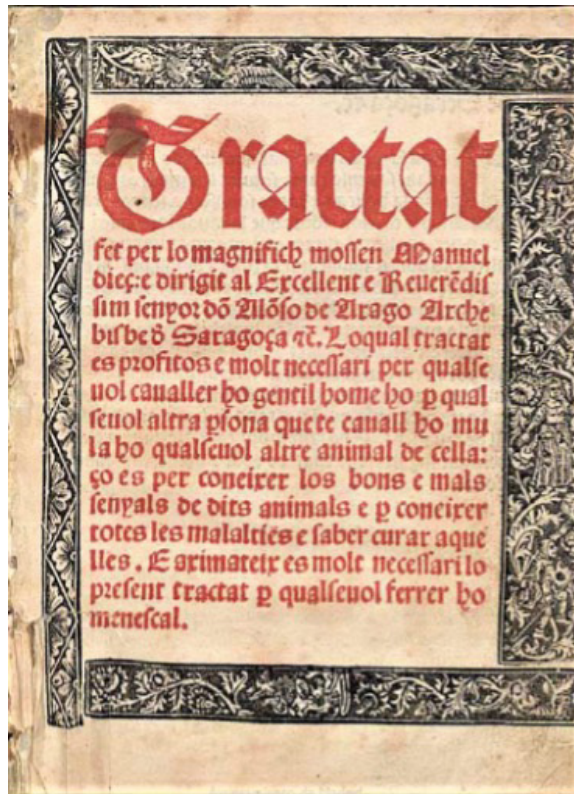 Tractat
fet per lo magnifich mossen Manuel
dieç:e dirigit al Excellent e Reuerēdis
sim senyor dō Alōso de Arago Arche
bisbe đ Saragoça ⁊č. Loqual tractat
es profitos e molt necessari per qualse
uol caualler ho gentil home ho ꝑ qual
seuol altra ꝑsona que te cauall ho mu
la ho qualseuol altre animal de cella:
ço es per coneixer los bons e mals
senyals de dits animals e ꝑ coneixer
totes les malalties e saber curar aque
lles. E aximateix es molt necessari lo
present tractat ꝑ qualseuol ferrer ho
menescal.